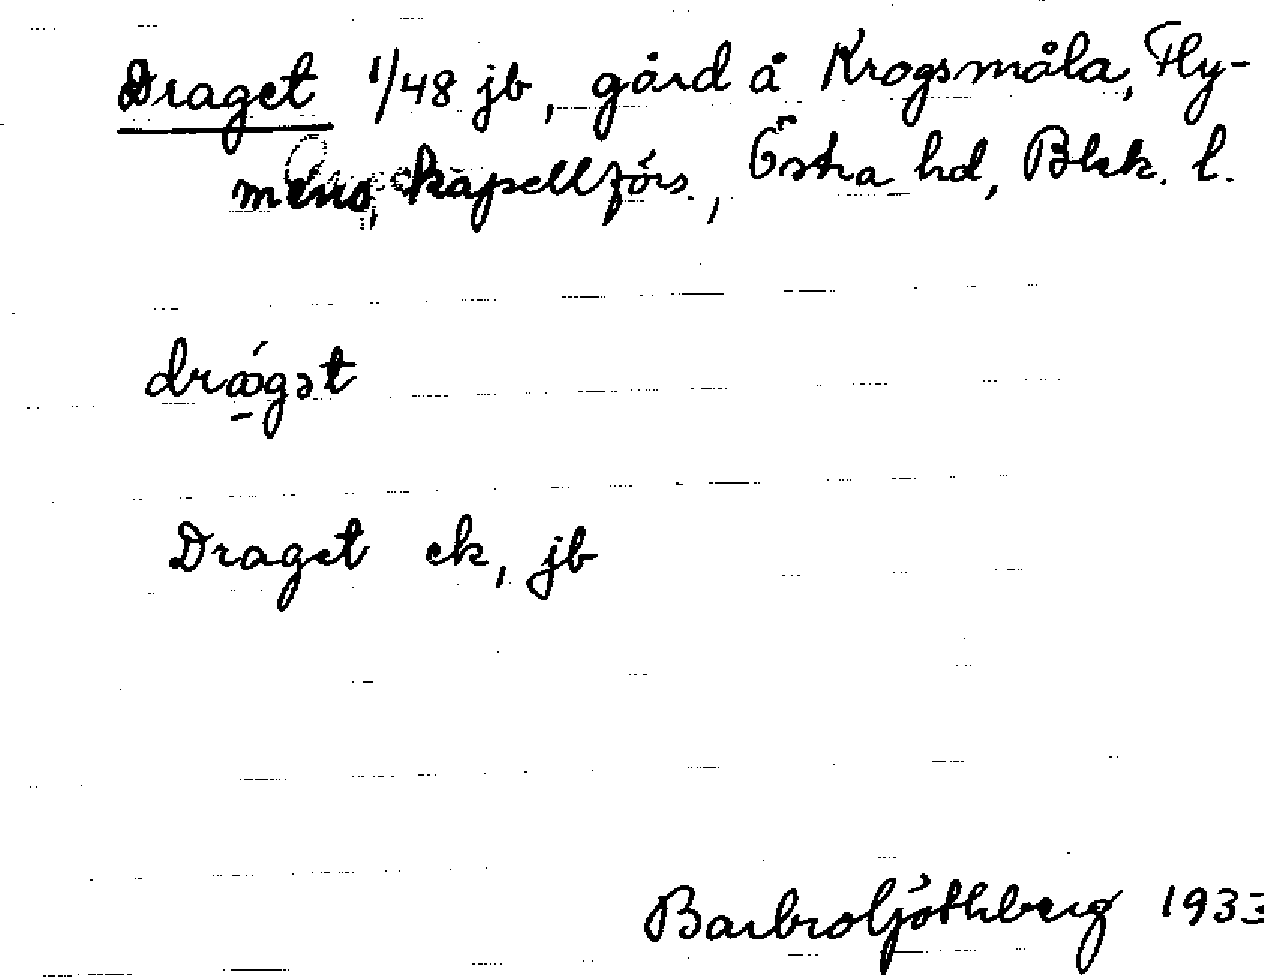 Draget 1/48 jb, gård å Krogsmåla, Fly-
mens kapellförs., Östra hd, Blek. l.
drágət
Draget ek, jb
Barbro Ljóthberg 1933